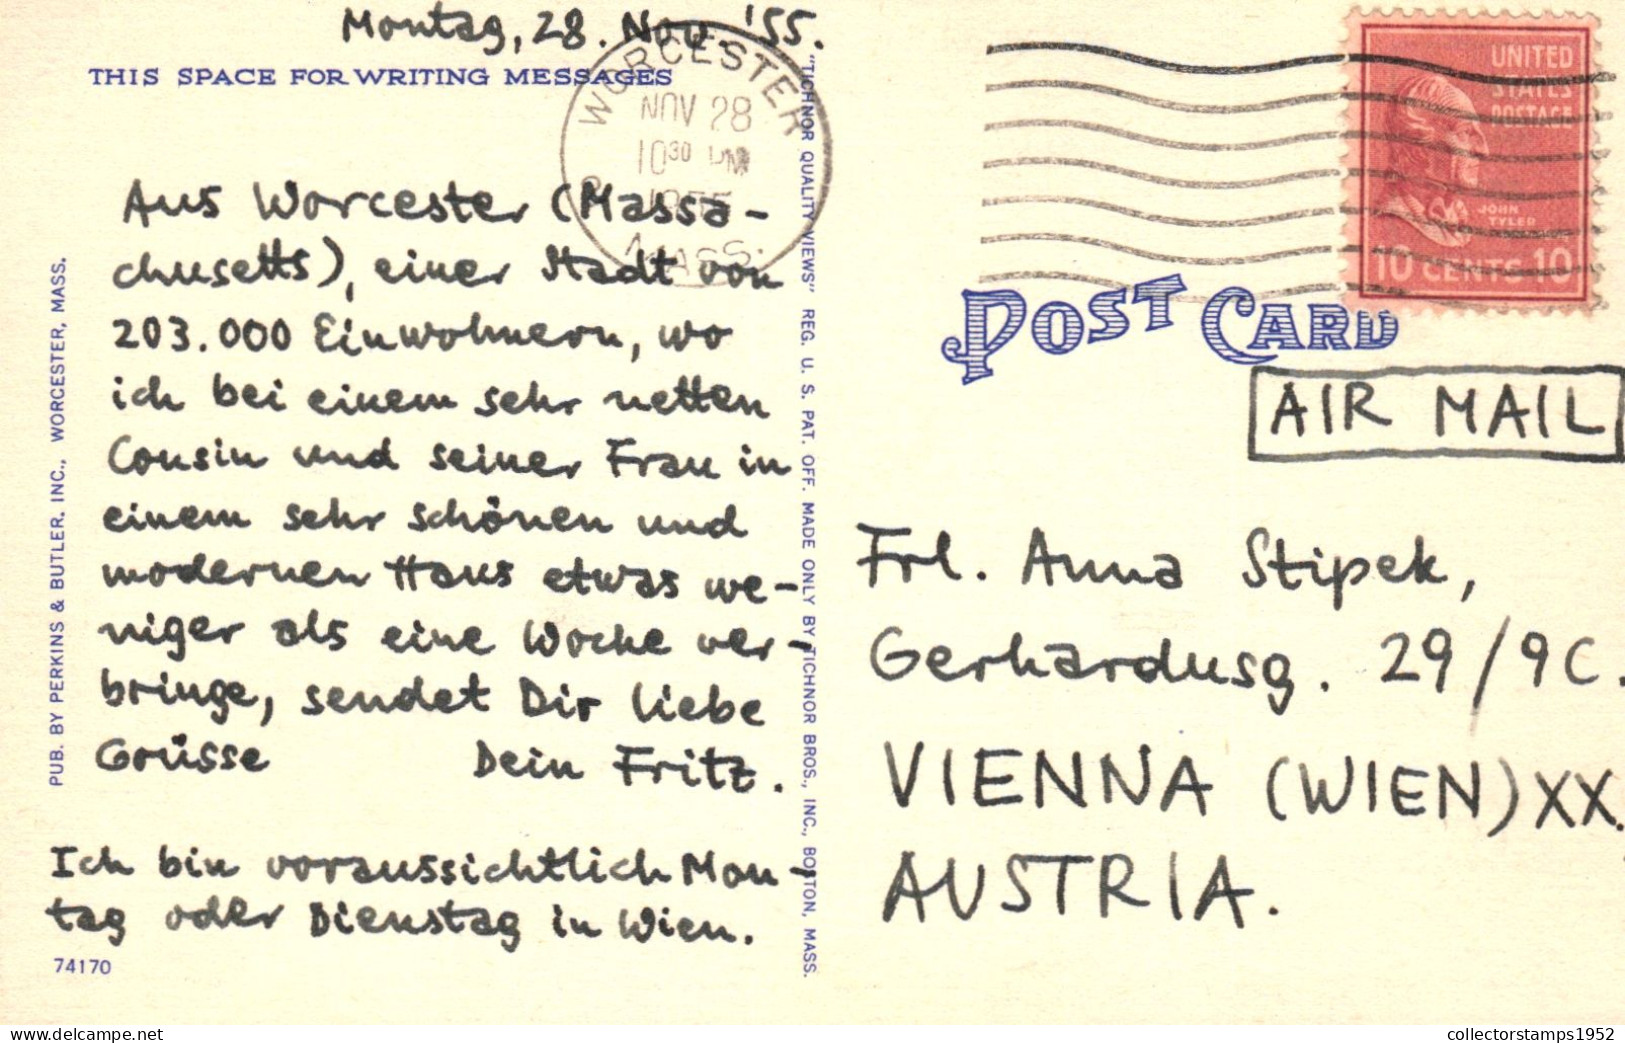 Montag, 28. Nov. '55.
THIS SPACE FOR WRITING MESSAGES
Aus Worcester (Massa-
chusetts), einer Stadt von
203.000 Einwohnern, wo
ich bei einem sehr netten
Cousin und seiner Frau in
einem sehr schönen und
modernen Haus etwas we-
niger als eine Woche ver-
bringe, sendet Dir liebe
Grüsse Dein Fritz.
Ich bin voraussichtlich Mon-
tag oder Dienstag in Wien.
74170
PUB. BY PERKINS & BUTLER, INC., WORCESTER, MASS.
"TICHNOR QUALITY VIEWS" REG. U. S. PAT. OFF. MADE ONLY BY TICHNOR BROS., INC., BOSTON, MASS.
WORCESTER
NOV 28
10 30 PM
1955
MASS.
UNITED
STATES
POSTAGE
JOHN
TYLER
10 CENTS 10
POST CARD
AIR MAIL
Frl. Anna Stipek,
Gerhardusg. 29/9C.
VIENNA (WIEN) XX.
AUSTRIA.
delcampe.net
collectorstamps1952